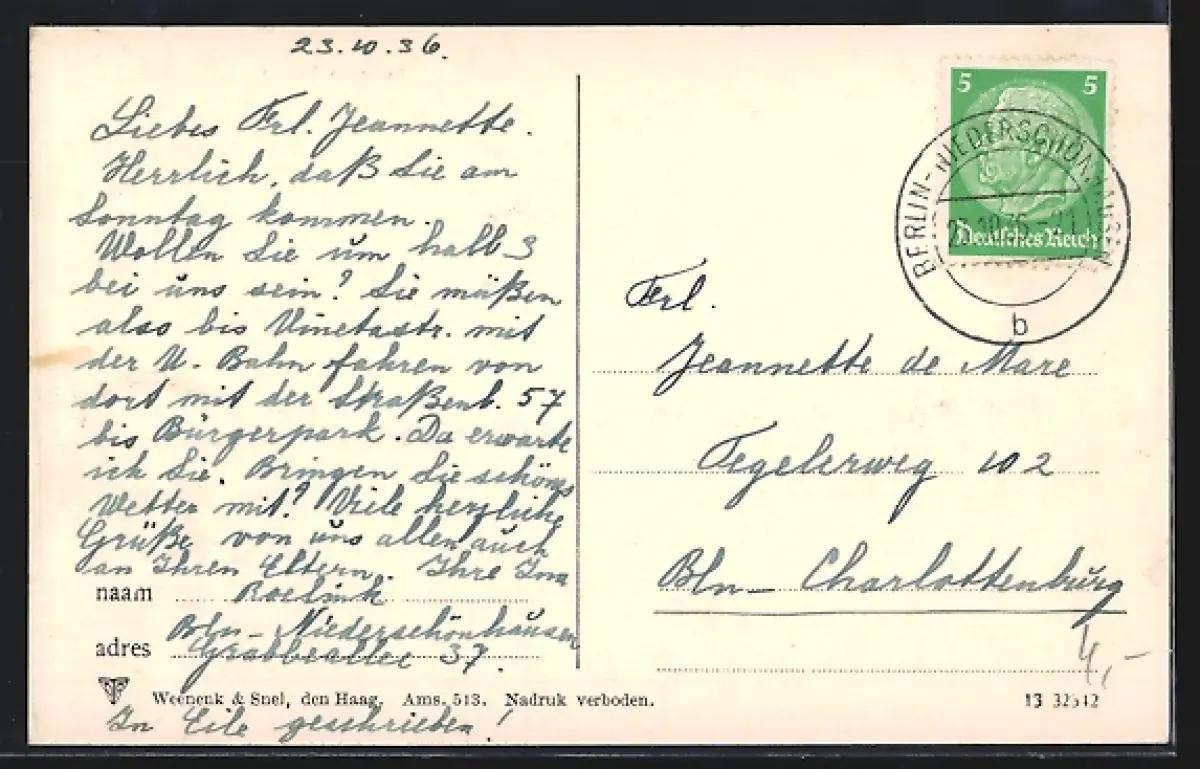 23.10.36.
Liebes Frl. Jeannette.
Herrlich, daß Sie am
Sonntag kommen.
Wollen Sie um halb 3
bei uns sein? Sie müßen
also bis Vinetastr. mit
der U. Bahn fahren von
dort mit der Straßenb. 57
bis Bürgerpark. Da erwarte
ich Sie. Bringen Sie schönes
Wetter mit? Viele herzliche
Grüße von uns allen auch
an Ihren Eltern. Ihre
naam Roelink
Bln-Niederschönhausen
adres Grabbeallee 37.
Weenenk & Snel, den Haag. Ams. 513. Nadruk verboden.
In Eile geschrieben!
5 5
Deutsches Reich
BERLIN-NIEDERSCHÖNHAUSEN
b
Frl.
Jeannette de Mare
Tegelerweg 102
Bln- Charlottenburg
4,-